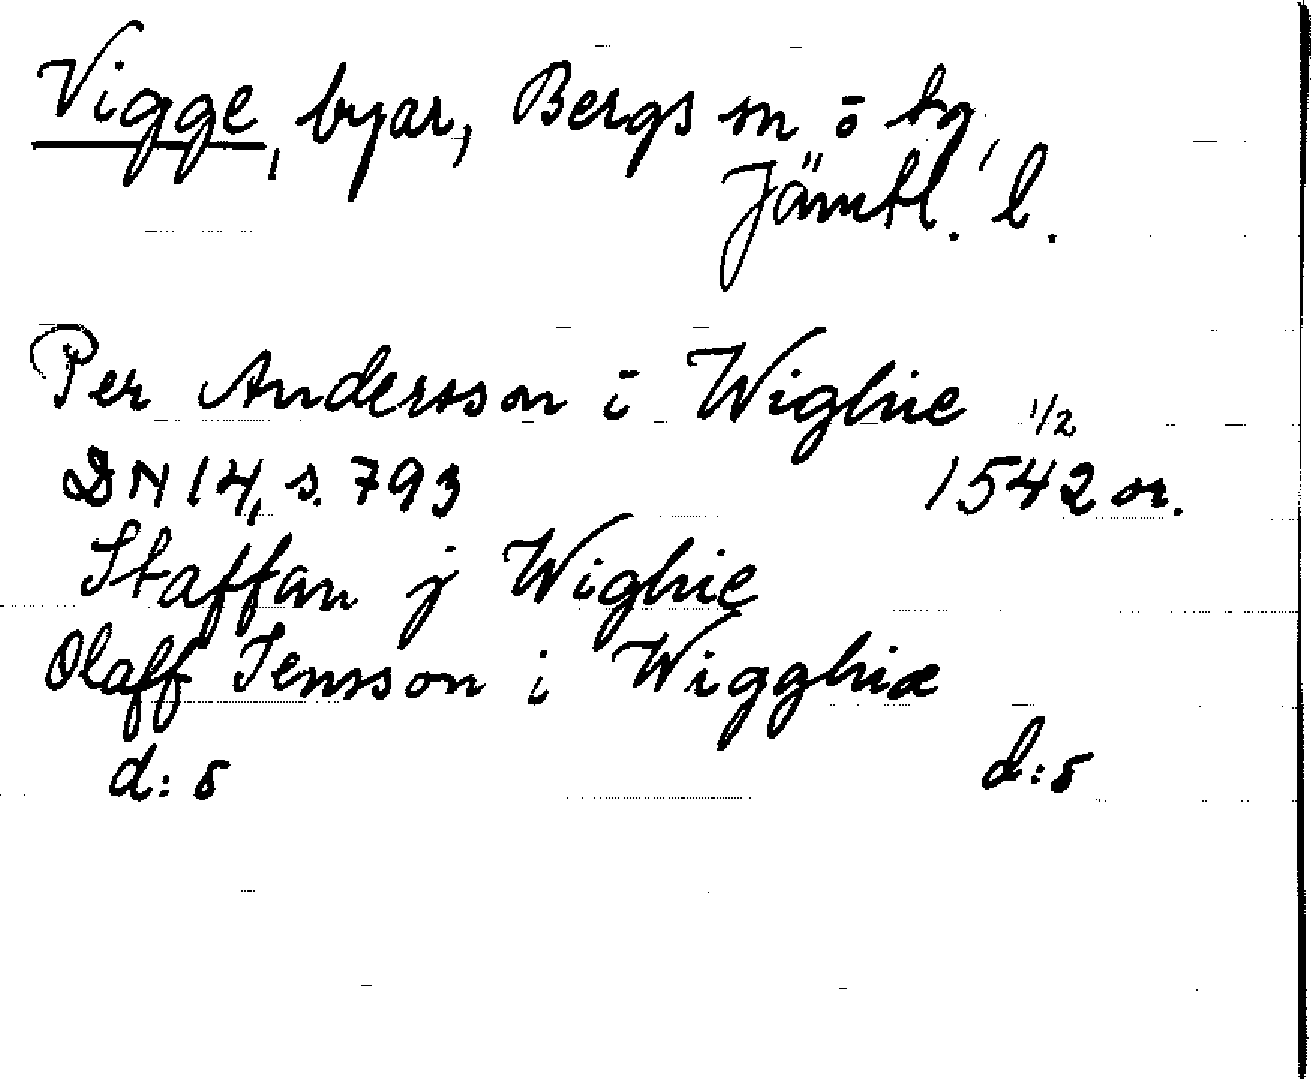 Vigge, byar, Bergs sn o tg,
Jämtl. l.
Per Andersson i Wighie 1/2
DN 14, s. 793 1542 or.
Staffan j Wighie
Olaff Jensson i Wigghiæ
d:o d:o